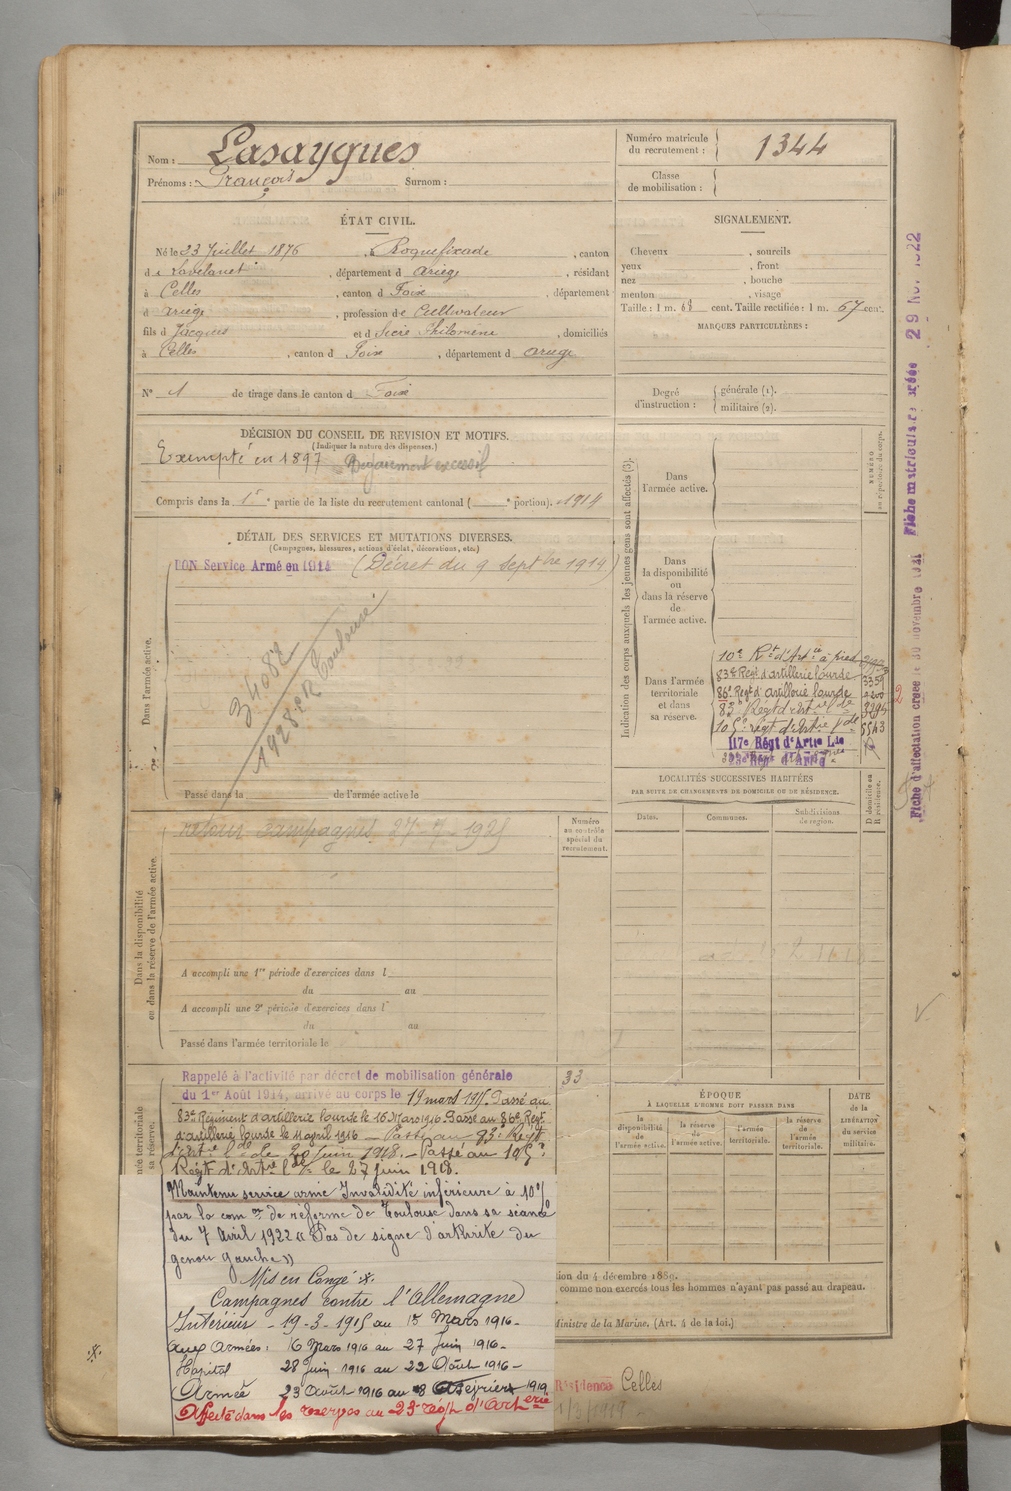 Nom : Lasaygues
Prénoms : François Surnom :
Numéro matricule du recrutement : 1344
Classe de mobilisation :
ÉTAT CIVIL.
Né le 23 Juillet 1876, à Roquefixade, canton
de Lavelanet, département d Ariège, résidant
à Celles, canton d Foix, département
d Ariège, profession de Cultivateur
fils d Jacques et d Philomène, domiciliés
à Celles, canton d Foix, département d Ariège
N° 1 de tirage dans le canton d Foix
SIGNALEMENT.
Cheveux , sourcils
yeux , front
nez , bouche
menton , visage
Taille : 1 m. 68 cent. Taille rectifiée : 1 m. 67 cent.
MARQUES PARTICULIÈRES :
Degré d'instruction : générale (1).
militaire (2).
DÉCISION DU CONSEIL DE REVISION ET MOTIFS.
(Indiquer la nature des dispenses.)
Exempté en 1897
Compris dans la 1re partie de la liste du recrutement cantonal ( e portion). 1914
DÉTAIL DES SERVICES ET MUTATIONS DIVERSES.
(Campagnes, blessures, actions d'éclat, décorations, etc.)
BON Service Armé en 1914 (Décret du 9 Septbre 1914)
Dans l'armée active.
Toulouse
Passé dans la de l'armée active le
Indication des corps auxquels les jeunes gens sont affectés (3).
NUMÉRO
au répertoire du corps.
Dans
l'armée active.
Dans
la disponibilité
ou
dans la réserve
de
l'armée active.
Dans l'armée
territoriale
et dans
sa réserve.
10e Rt d'Artie à pied
83e Régt d'artillerie lourde
86e Régt d'artillerie lourde
83e Régt d'Artie lde
105e régt d'Artie lde
117e Régt d'Artie Lde
23e Régt d'Artie
LOCALITÉS SUCCESSIVES HABITÉES
PAR SUITE DE CHANGEMENTS DE DOMICILE OU DE RÉSIDENCE.
Dates. Communes. Subdivisions de région.
D domicile ou
R résidence.
Numéro
au contrôle
spécial du
recrutement.
Dans la disponibilité
ou dans la réserve de l'armée active.
A accompli une 1re période d'exercices dans l
du au
A accompli une 2e période d'exercices dans l
du au
Passé dans l'armée territoriale le
Rappelé à l'activité par décret de mobilisation générale
du 1er Août 1914, arrivé au corps le 19 mars 1915. Passé au
83e Régiment d'artillerie lourde le 16 Mars 1916. Passé au 86e Régt
d'artillerie lourde le 11 avril 1916 - Passé au 83e Régt
d'Artie lde le 20 Juin 1918. - Passé au 105e
Régt d'Artie lde le 27 Juin 1918.
33
Maintenu service armé Invalidité inférieure à 10%
par la comon de réforme de Toulouse dans sa séance
du 7 Avril 1922 « Pas de signe d'arthrite du
genou gauche »
Mis en Congé
Campagnes contre l'Allemagne
Intérieur - 19-3-1915 au 15 Mars 1916 -
aux Armées : 16 Mars 1916 au 27 Juin 1916 -
Hôpital 28 Juin 1916 au 22 Août 1916 -
Armée 23 Août 1916 au 8 février 1919
Affecté dans les réserves au 23e rég't d'Artierie
ÉPOQUE
À LAQUELLE L'HOMME DOIT PASSER DANS
la disponibilité de l'armée active.
la réserve de l'armée active.
l'armée territoriale.
la réserve de l'armée territoriale.
DATE
de la
LIBÉRATION
du service
militaire.
du 4 décembre 1889.
comme non exercés tous les hommes n'ayant pas passé au drapeau.
Ministre de la Marine. (Art. 4 de la loi.)
Résidence Celles
Fiche matriculaire créée 29 Nov 1922
Fiche d'affectation créée le 30 novembre